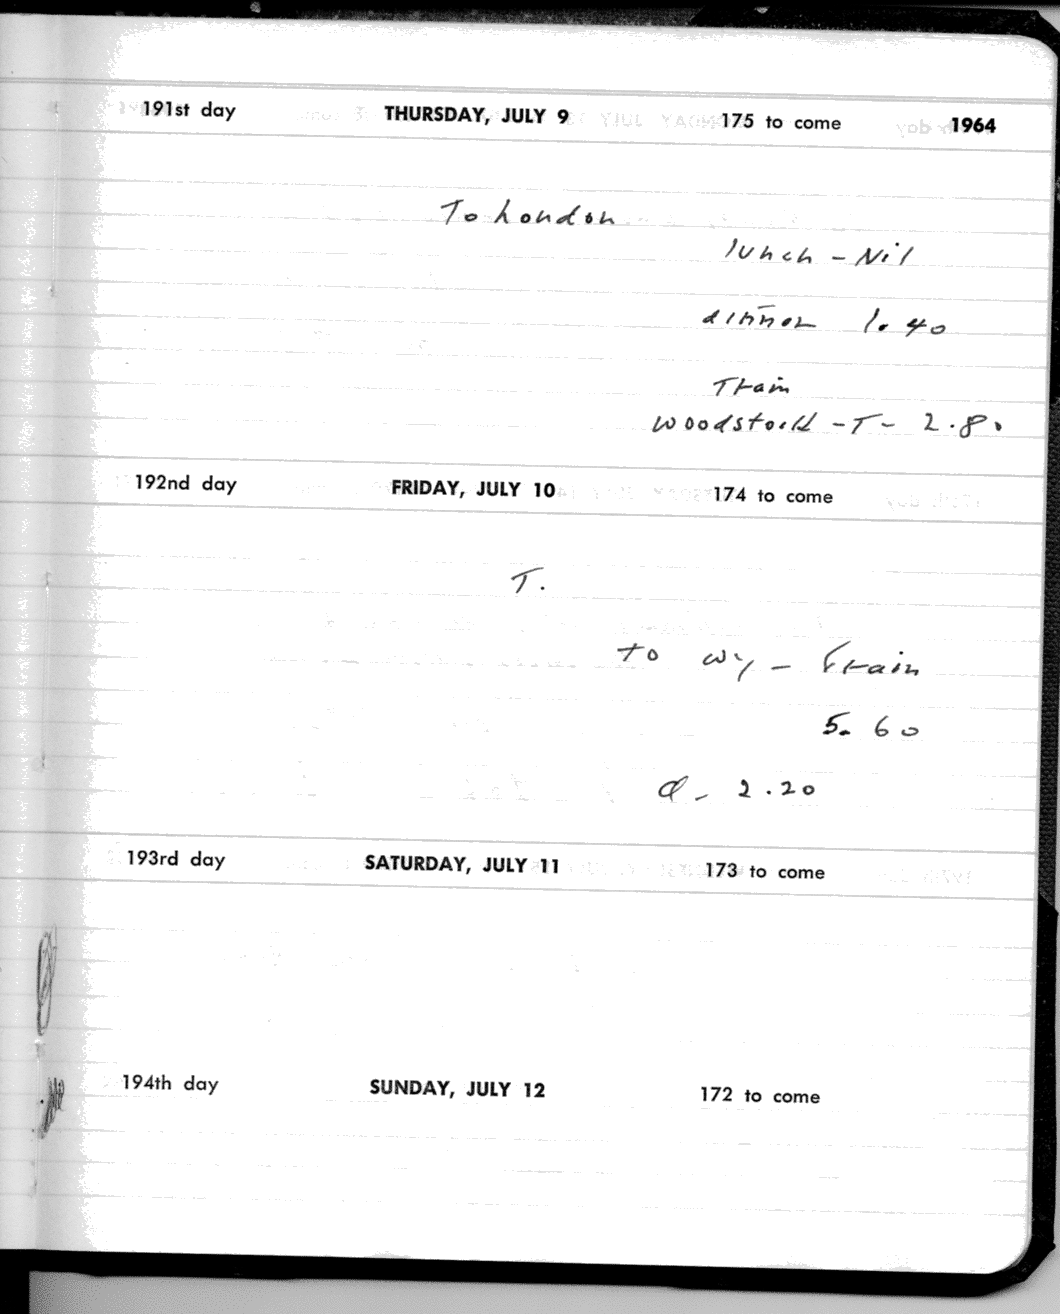 191st day THURSDAY, JULY 9 175 to come 1964
To London
lunch - Nil
dinner 1.40
Train
Woodstock - T - 2.80
192nd day FRIDAY, JULY 10 174 to come
T.
to Wy - train
5.60
d - 2.20
193rd day SATURDAY, JULY 11 173 to come
194th day SUNDAY, JULY 12 172 to come